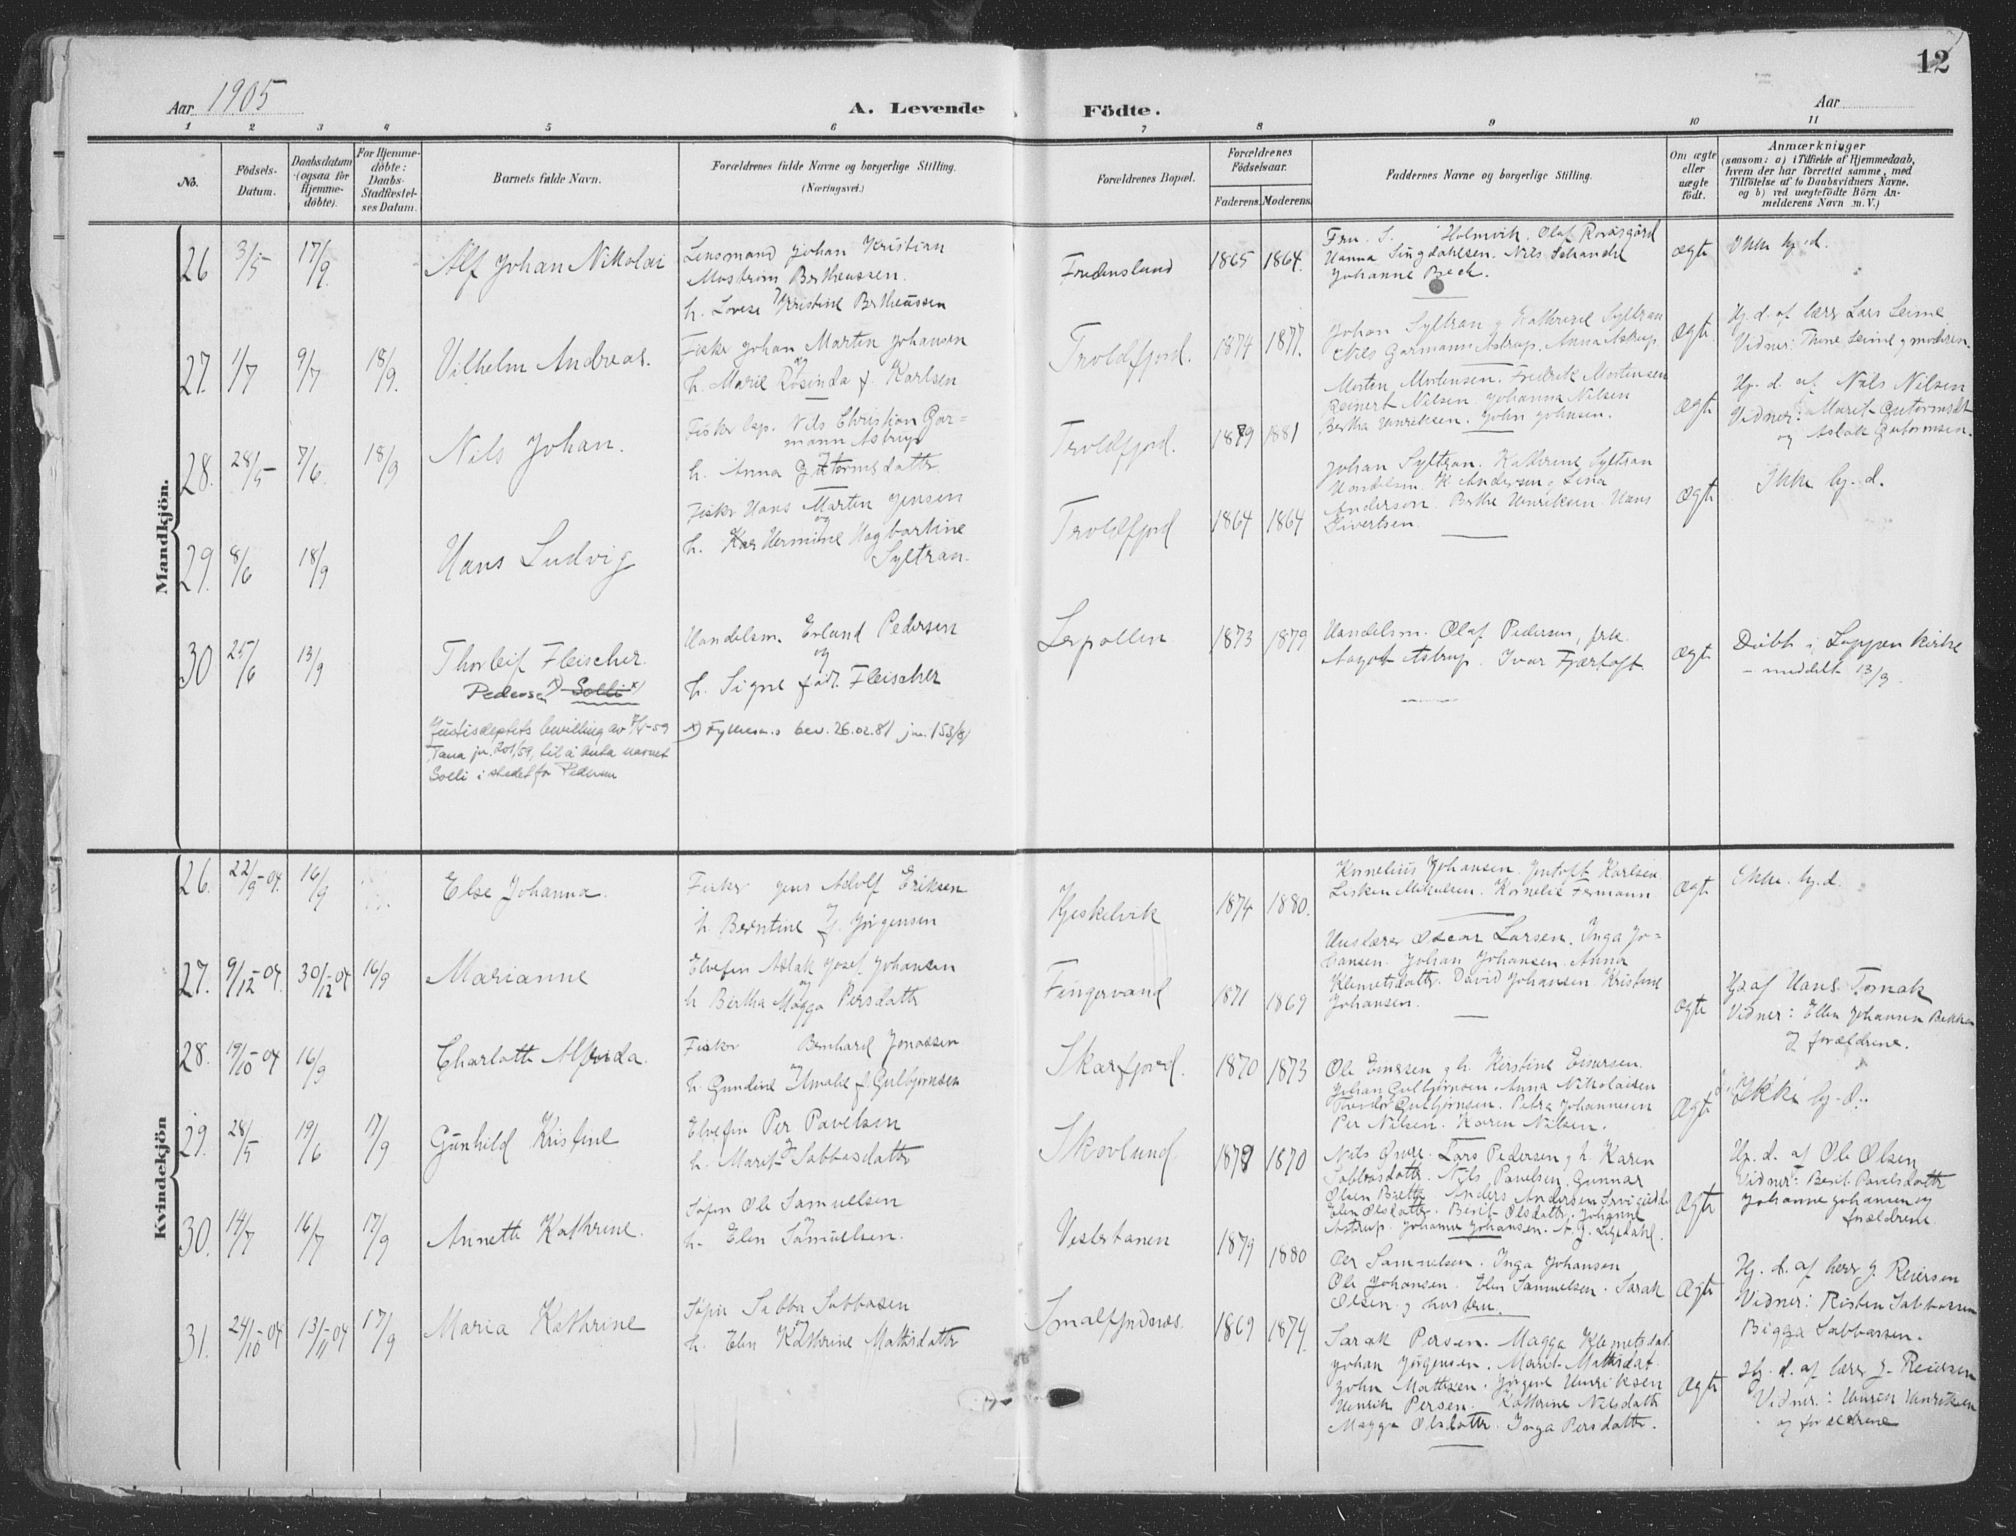 12
Aar 1905
A. Levende Födte.
Aar
1 2 3 4 5 6 7 8 9 10 11
No.
Födsels-Datum.
Daabsdatum (ogsaa for Hjemme-döbte).
For Hjemme-döbte: Daabs-Stadfæstel-ses Datum.
Barnets fulde Navn.
Forældrenes fulde Navne og borgerlige Stilling. (Næringsvei.)
Forældrenes Bopæl.
Forældrenes Födselsaar.
Faderens. Moderens.
Faddernes Navne og borgerlige Stilling.
Om ægte eller uægte födt.
Anmærkninger
(saasom: a) i Tilfælde af Hjemmedaab,
hvem der har forrettet samme, med
Tilföielse af to Daabsvidners Navne,
og b) ved uægtefödte Börn An-
melderens Navn m. V.)
Mandkjön.
26 3/5 17/9 Alf Johan Nikolai
Lensmand Johan Kristian
Bertheussen.
h. Lovise Kristine Bertheussen
Fredenslund 1865 1864.
Fru S. Holmvik. Olaf
Hanna Lingdahlsen. Nils Schandel
Johanne Beck.
ægte Ikke hj. d.
27. 1/7 9/7 18/9. Vilhelm Andreas.
Fisker Johan Martin Johansen
og
h. Marie Rosinda f. Karlsen
Troldfjord. 1874 1877.
Johan Syltran og Kathrine Syltran
Nils Garmann Astrup. Anna Astrup.
Ægte.
Hj. d. af lærer Lars Leine
Vidner: Leine og moderen.
28. 28/5 7/6 18/9 Nils Johan.
Fisker Nils Christian Gar=
mann Astrup
h. Anna Gutormsdatter
Troldfjord. 1879 1881
Morten Mortensen. Fredrik Mortensen
Reinert Nilsen. Johanna Nilsen
Bertha Henriksen. John Johnsen.
ægte
Hj. d. af Nils Nilsen
Vidner: Marit Gutormsdt
og Aslak Gutormsen.
29. 8/6 18/9 Hans Ludvig
Fisker Hans Martin Jensen
og
h. Hermine Hagbartine
Syltran.
Troldfjord 1864 1864
Johan Syltran. Kathrine Syltran
Handelsm. H. Andersen. Lina
Andersen. Berthe Henriksen. Hans
Sivertsen.
ægte Ikke hj. d.
30 25/6 13/9 Thorleif Fleischer.
Pedersen x) Solli x)
Handelsm. Erland Pedersen
og
h. Signe født Fleischer
Lerpollen 1873 1879
Handelsm. Olaf Pedersen, frk.
Aagot Astrup. Ivar Fjærtoft.
ægte
Døbt i Loppen kirke
– meddelt 13/9
Justisdeptets bevilling av 7/4-59
Tana jn. 201/59, til å anta navnet
Solli i stedet for Pedersen
x) Fylkesm.s bev. 26.02.81 jnr. 153/81
Kvindekjön
26. 22/9-04. 16/9 Else Johanna.
Fisker Jens Adolf Eriksen
h. Berntine f. Jörgensen
Kjeskelvik 1874 1880.
Kornelius Johansen. Jentoft Karlsen
Lisken Mikalsen. Kornelie Fermann
ægte Ikke hj. d.
27. 9/12-04. 30/12-04 16/9 Marianne
Elvefin Aslak Josef Johansen
og
h. Bertha Magga Persdatter
Fingervand 1871 1869
Huslærer Oscar Larsen. Inga Jo=
hansen. Johan Johansen. Anna
Klemetsdatter. David Johansen. Kristine
Johansen.
ægte
Hj. d. af Hans Tornak
Vidner: Ellen Johansen
og forældrene.
28. 19/10-04 16/9 Charlotte Alfrida.
Fisker Bernhard Jonassen
og
h. Gundine Amalie f. Gulbjørnsen
Skarfjord. 1870 1873
Ole Einersen og h. Kirstine Einersen.
Johan Gulbjørnsen. Anna Nikolaisen
Teodor Gulbjørnsen. Petra Johannesen
Per Nilsen. Karen Nilsen.
Ægte Ikke hj. d.
29. 28/5 19/6 17/9 Gunhild Kristine
Elvefin Per Pavelsen
h. Marit Sabbasdatter
Skovlund. 1870
Nils Lars Pedersen og h. Karen
Sabbasdatter. Nils Pavelsen. Gunnar
Olsen Anders Andersen
Elen Olsdatter. Berit Olsdatter. Johanne
Astrup. Johanne Johansen.
Ægte
Hj. d. af Ole Olsen
Vidner: Berit Pavelsdatter
Johanne Johansen og
forældrene
30. 14/7 16/7 17/9 Annette Kathrine.
Søfin Ole Samuelsen
h. Elen Samuelsen.
Vestertanen 1879 1880
Per Samuelsen. Inga Johansen
Ole Johansen. Elen Samuelsen. Sarak
Olsen og hustru.
Ægte
Hj. d. af lærer J. Reiersen
Vidner: Risten Sabbasen
Bigga Sabbassen.
31. 24/10-04 13/11-04 17/9 Maria Kathrine
Søfin Sabba Sabbasen
h. Elen Kathrine Mathisdatter
Smalfjordnæs. 1869 1874
Sarak Persen. Magga Klemetsdat.
Johan Jørgensen. Marit Mathisdat.
John Mathisen. Jørgine Henriksen
Henrik Persen. Kathrine Nilsdatter
Magga Olsdatter. Inga Persdatter.
Ægte
Hj. d. af lærer J. Reiersen
Vidner: Henrik Henriksen
og forældrene